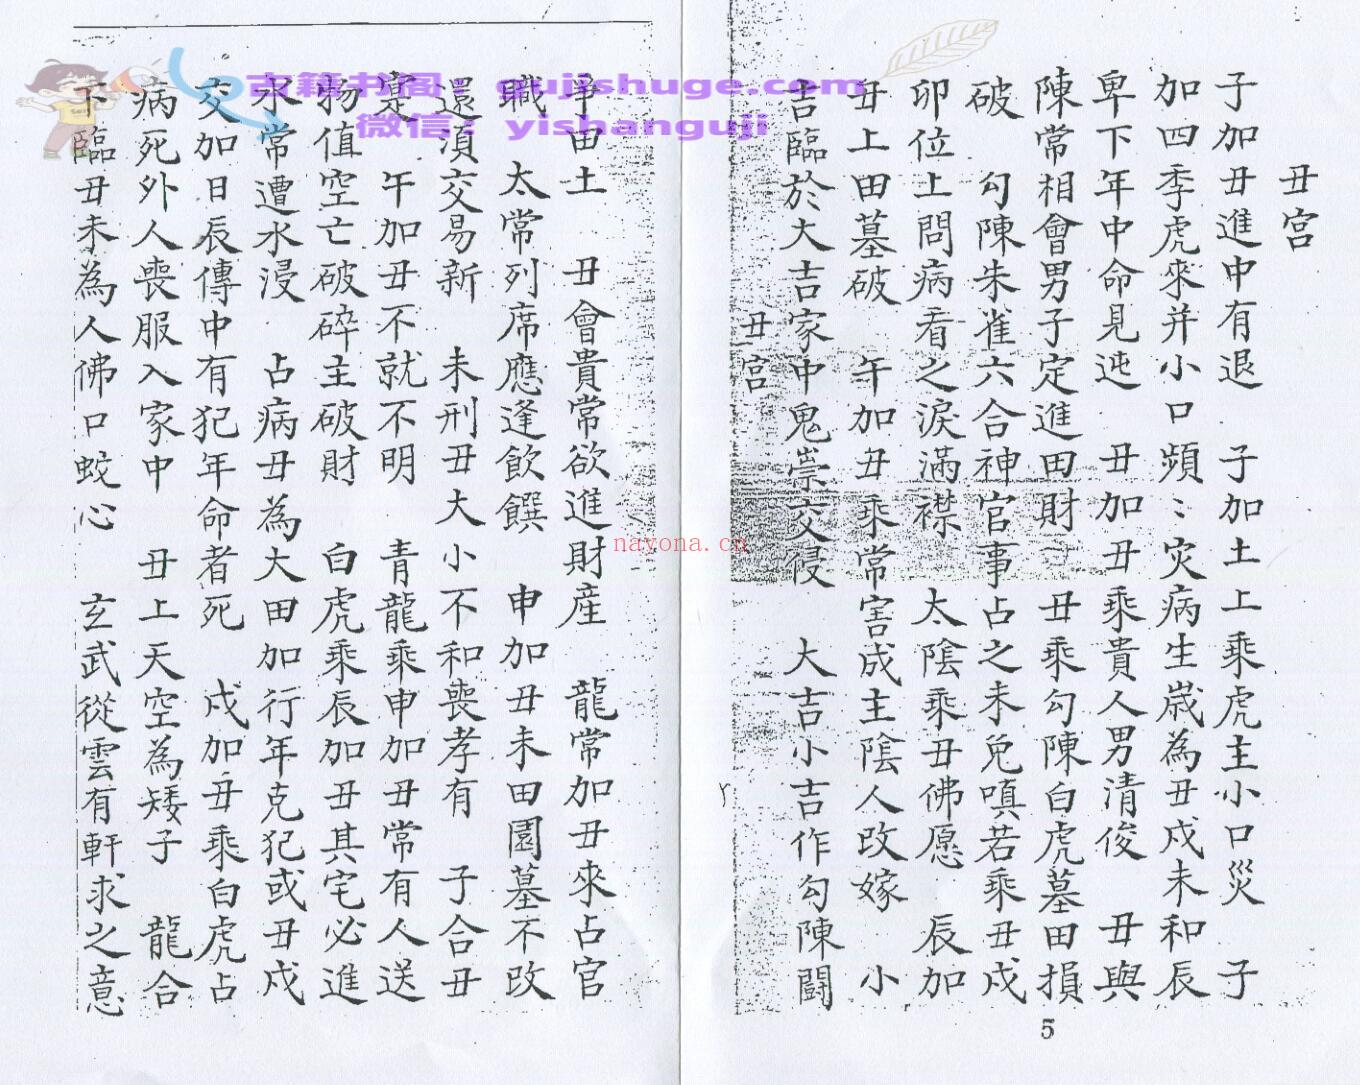 丑宮
子加丑進中有退　子加土上乘虎主小口災　子
加四季虎來并小口頻〻灾病生歲為丑戌未和辰
卑下年中命見迍　丑加丑乘貴人男清俊　丑與
陳常相會男子定進田財　丑乘勾陳白虎墓田損
破　勾陳朱雀六合神官事占之未免嗔若乘丑戌
卯位上問病看之淚滿襟　太陰乘丑佛愿　辰加
丑上田墓破　午加丑乘常害成主陰人改嫁　小
吉臨於大吉家中鬼崇交侵　大吉小吉作勾陳鬪
丑宮
爭田土　丑會貴常欲進財產　龍常加丑來占官
職　太常列席應逢飲饌　申加丑未田園墓不改
還須交易新　未刑丑大小不和喪孝有　子合丑
寔　午加丑不就不明　青龍乘申加丑常有人送
物值空亡破碎主破財　白虎乘辰加丑其宅必進
水常遭水浸　占病丑為大田加行年克犯或丑戌
交加日辰傳中有犯年命者死　戌加丑乘白虎占
病死外人喪服入家中　丑上天空為矮子　龍合
下臨丑未為人佛口蛟心　玄武從雲有軒求之意
5
古籍书阁：gujishuge.com
微信：yishanguji
nayona.cn